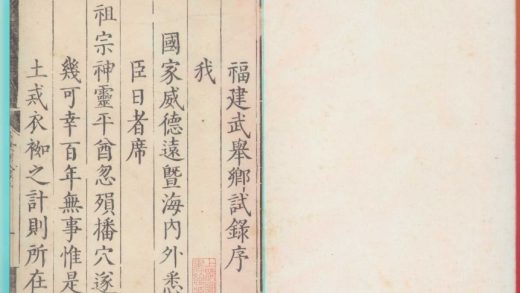 福建武舉鄉試錄序
我
國家威德遠曁海內外悉
臣日者席
祖宗神靈平酋忽殞播穴遂
幾可幸百年無事惟是
土戎衣袽之計則所在